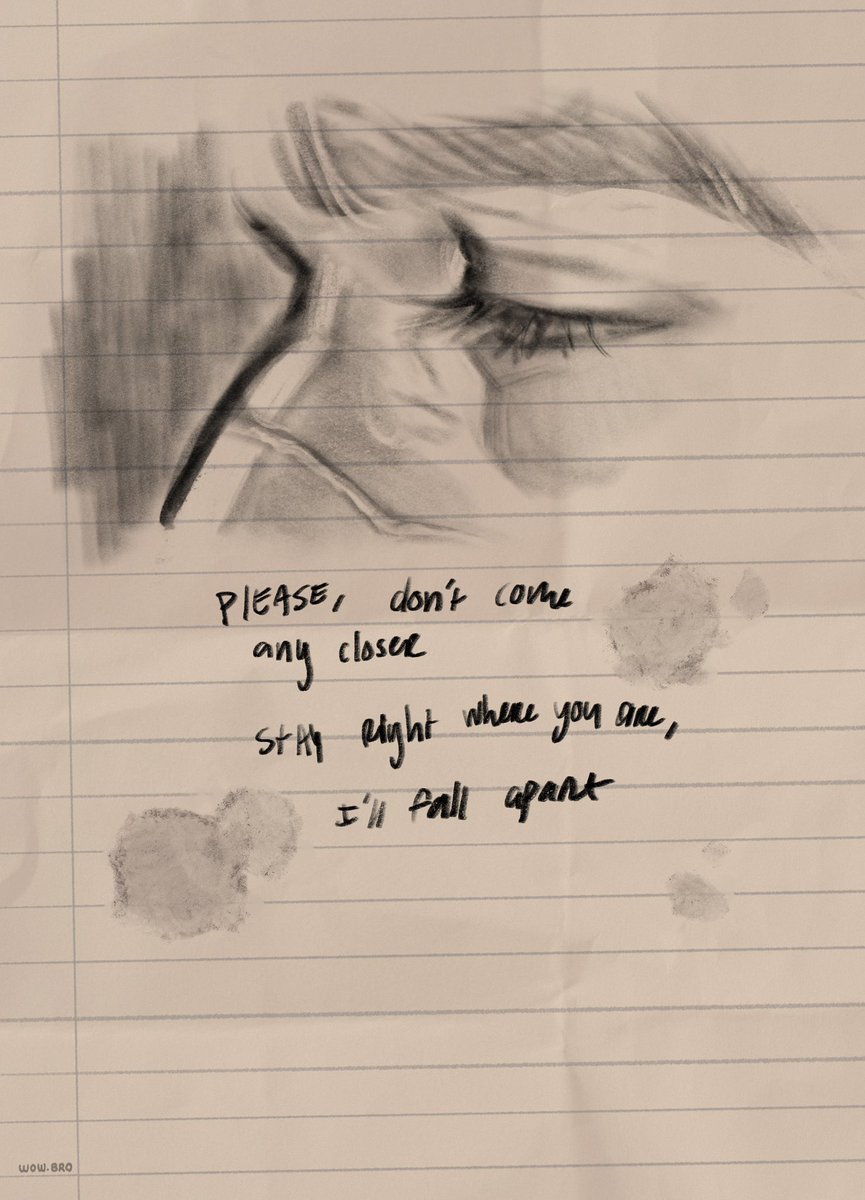 PlEASE, don't come
any closer
stay right where you are,
I'll fall apart
WOW.BRO